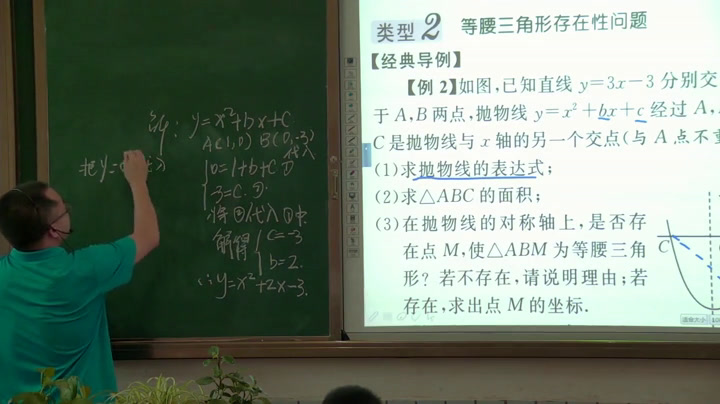 解：y=x²+bx+c
A(1,0) B(0,-3)
代入
0=1+b+c ①
-3=c ②
将②代入①中
解得 c=-3
b=2
∴y=x²+2x-3.
把y=
类型2 等腰三角形存在性问题
【经典导例】
【例2】如图,已知直线 y=3x-3 分别交
于 A,B 两点,抛物线 y=x²+bx+c 经过 A,
C 是抛物线与 x 轴的另一个交点(与 A 点不重
(1)求抛物线的表达式;
(2)求△ABC的面积;
(3)在抛物线的对称轴上,是否存
在点 M,使△ABM 为等腰三角
形? 若不存在,请说明理由;若
存在,求出点 M 的坐标.
C